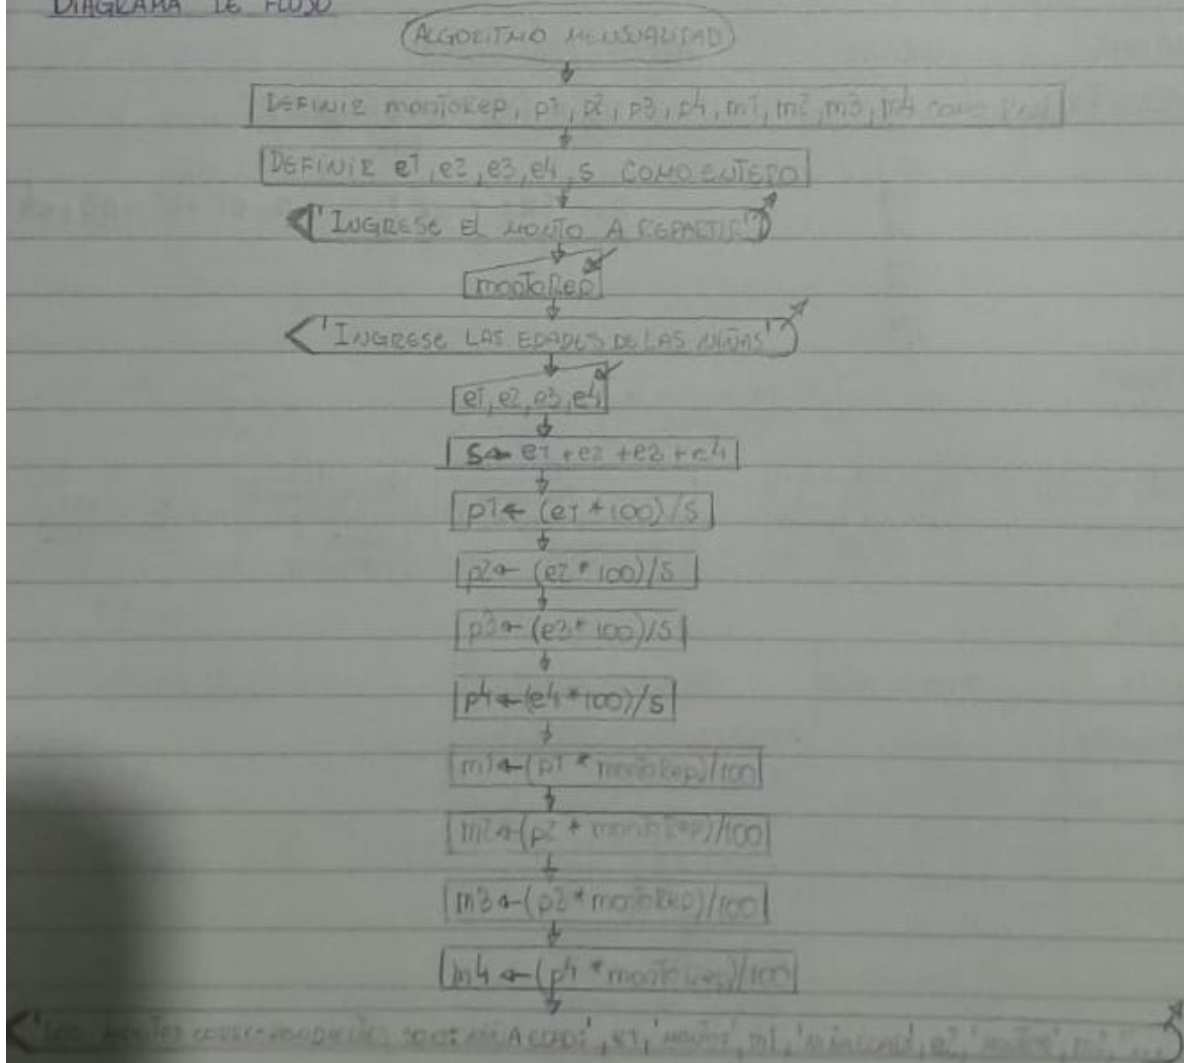 DIAGRAMA DE FLUJO
ALGORITMO MENSUALIDAD
DEFINIR montoRep, p1, p2, p3, p4, m1, m2, m3, m4 como Real
DEFINIR e1, e2, e3, e4, s COMO ENTERO
'INGRESE EL MONTO A REPARTIR'
montoRep
'INGRESE LAS EDADES DE LAS NIÑAS'
e1, e2, e3, e4
S ← e1 + e2 + e3 + e4
p1 ← (e1 * 100) / S
p2 ← (e2 * 100) / S
p3 ← (e3 * 100) / S
p4 ← (e4 * 100) / S
m1 ← (p1 * montoRep) / 100
m2 ← (p2 * montoRep) / 100
m3 ← (p3 * montoRep) / 100
m4 ← (p4 * montoRep) / 100
'Los MONTOS CORRESPONDIENTES SON: ', e1, 'MONTO', m1, e2, 'MONTO', m2